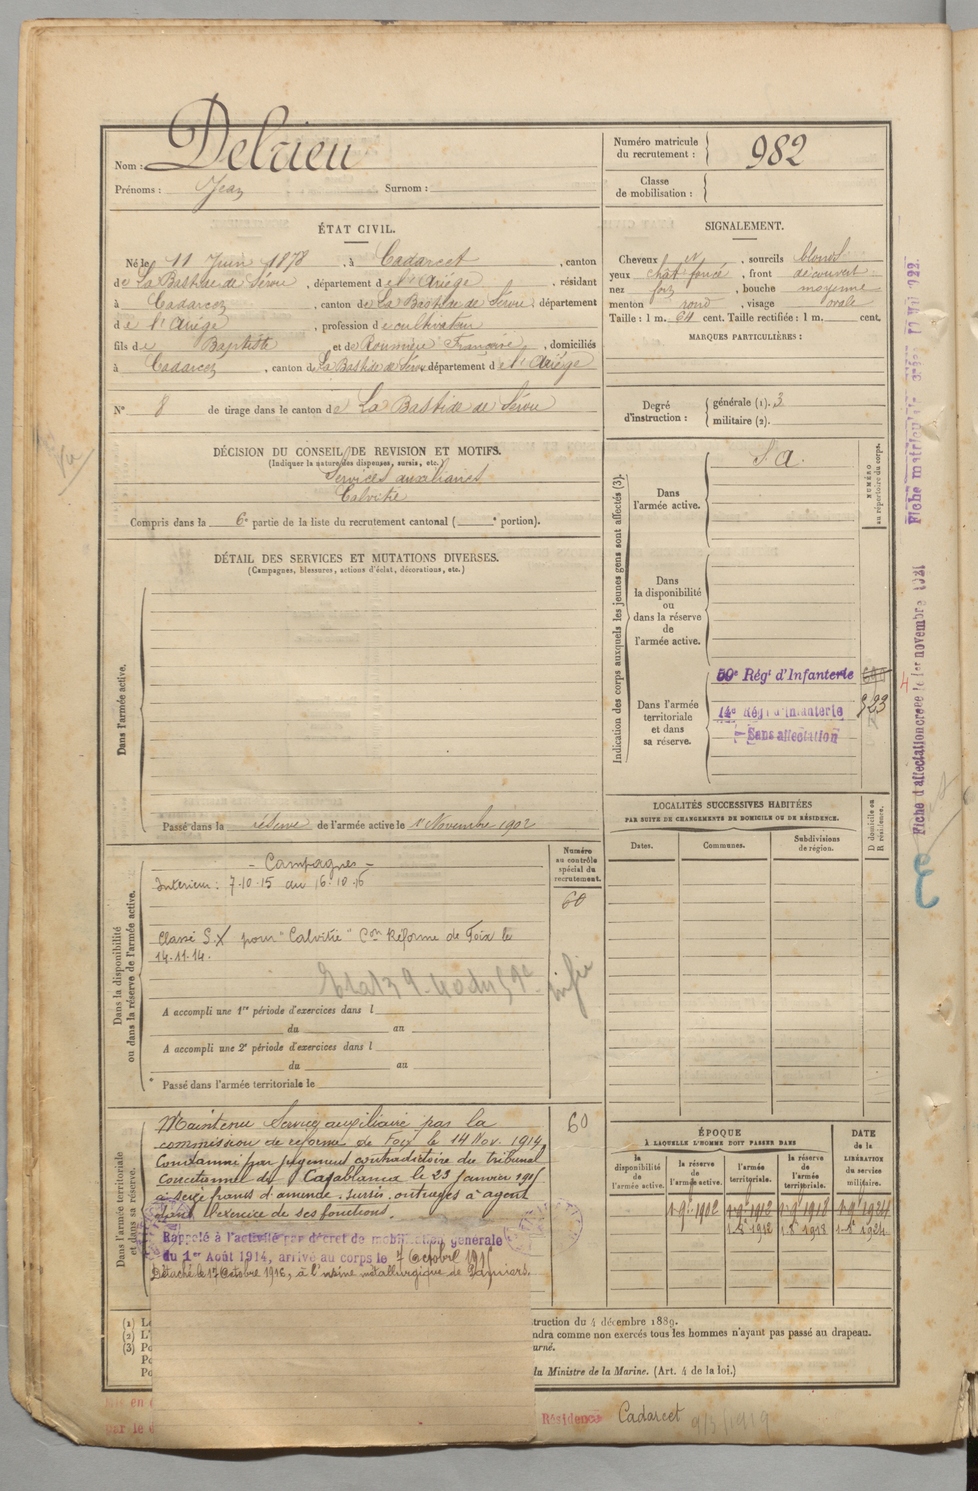 Nom : Delrieu
Prénoms : Jean Surnom :
Numéro matricule du recrutement : 982
Classe de mobilisation :
ÉTAT CIVIL.
Né le 11 Juin 1878, à Cadarcet, canton
de La Bastide de Sérou, département de l'Ariège, résidant
à Cadarcet, canton de La Bastide de Sérou, département
de l'Ariège, profession de cultivateur
fils de Baptiste et de Roumieu Française, domiciliés
à Cadarcet, canton de La Bastide de Sérou, département de l'Ariège
N° 8 de tirage dans le canton de La Bastide de Sérou
SIGNALEMENT.
Cheveux N, sourcils blonds
yeux chat foncé, front découvert
nez fort, bouche moyenne
menton rond, visage ovale
Taille : 1 m. 64 cent. Taille rectifiée : 1 m. cent.
MARQUES PARTICULIÈRES :
Degré d'instruction : générale (1). 3
militaire (2).
DÉCISION DU CONSEIL DE REVISION ET MOTIFS.
(Indiquer la nature des dispenses, sursis, etc.)
Services auxiliaires
Calvitie
Compris dans la 6e partie de la liste du recrutement cantonal ( e portion).
DÉTAIL DES SERVICES ET MUTATIONS DIVERSES.
(Campagnes, blessures, actions d'éclat, décorations, etc.)
Dans l'armée active.
Passé dans la réserve de l'armée active le 1er Novembre 1902
Indication des corps auxquels les jeunes gens sont affectés (3).
NUMÉRO au répertoire du corps.
Dans l'armée active.
S. A.
Dans la disponibilité ou dans la réserve de l'armée active.
Dans l'armée territoriale et dans sa réserve.
59e Régt d'Infanterie
14e Régt d'Infanterie
Sans affectation
323
Fiche matricule
Fiche d'affectation créée le 1er novembre 1921
Dans la disponibilité ou dans la réserve de l'armée active.
Numéro au contrôle spécial du recrutement.
60
- Campagnes -
Intérieur : 7-10-15 au 16-10-16
Classé S.X pour "Calvitie" Con Réforme de Foix le
14-11-14.
A accompli une 1re période d'exercices dans l
du au
A accompli une 2e période d'exercices dans l
du au
Passé dans l'armée territoriale le
LOCALITÉS SUCCESSIVES HABITÉES
PAR SUITE DE CHANGEMENTS DE DOMICILE OU DE RÉSIDENCE.
Dates. Communes. Subdivisions de région. D domicile ou R résidence.
Dans l'armée territoriale et dans sa réserve.
60
Maintenu Service auxiliaire par la
commission de réforme de Foix le 14 Nov. 1914
Condamné par jugement contradictoire du tribunal
Correctionnel de Casablanca le 23 Janvier 1915
à seize francs d'amende. Sursis. outrages à agent
dans l'exercice de ses fonctions.
Rappelé à l'activité par décret de mobilisation générale
du 1er Août 1914, arrivé au corps le 7 Octobre 1915
Détaché le 17 Octobre 1916, à l'usine métallurgique de Pamiers.
ÉPOQUE
À LAQUELLE L'HOMME DOIT PASSER DANS
la disponibilité de l'armée active. la réserve de l'armée active. l'armée territoriale. la réserve de l'armée territoriale.
DATE de la LIBÉRATION du service militaire.
1-9bre 1902 1-9bre 1912 1-9bre 1918 1-9bre 1924
1-8bre 1912 1-8bre 1918 1-8bre 1924
(1)
(2) L'
(3)
truction du 4 décembre 1889.
ndra comme non exercés tous les hommes n'ayant pas passé au drapeau.
urné.
la Ministre de la Marine. (Art. 4 de la loi.)
Résidence Cadarcet 9/3/1919